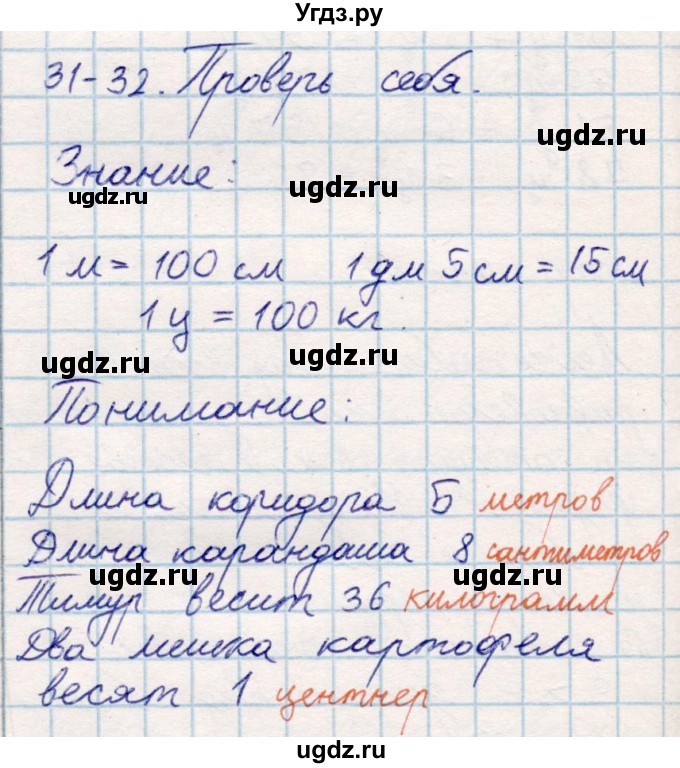 Угдз.ру
31-32. Проверь себя.
ugdz.ru
Знание:
ugdz.ru
ugdz.ru
1 м = 100 см 1 дм 5 см = 15 см
1 ц = 100 кг.
ugdz.ru
ugdz.ru
Понимание:
Длина коридора 5 метров
Длина карандаша 8 сантиметров
ugdz.ru
ugdz.ru
Тимур весит 36 килограмм
Два мешка картофеля
весят 1 центнер
ugdz.ru
ugdz.ru